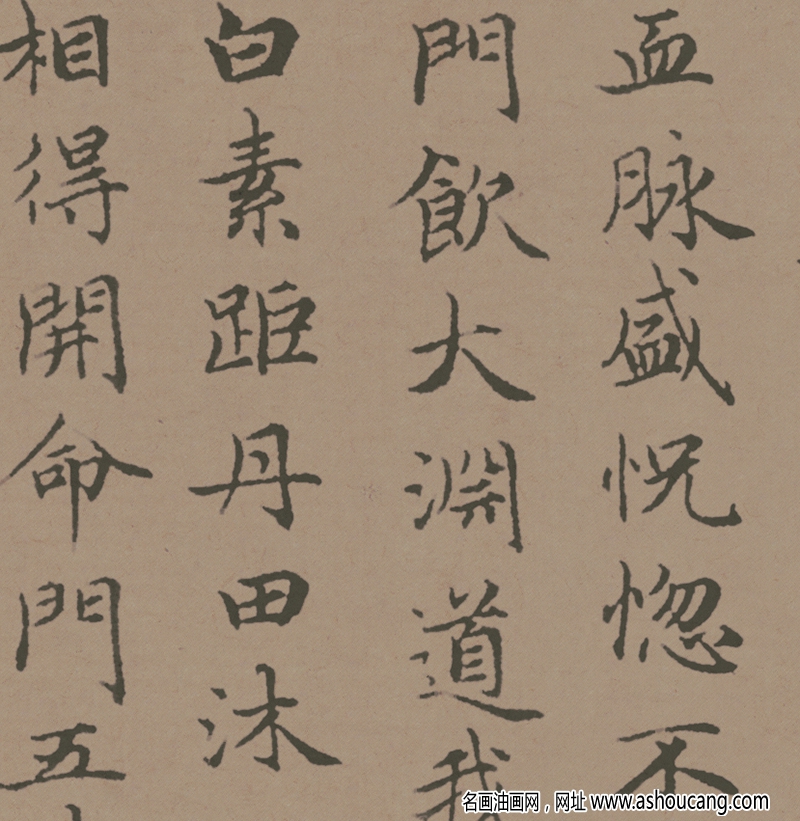 血脉盛怳惚不
門飲大渊道我
白素距丹田沐
相得開命門五
名画油画网，网址 www.ashoucang.com